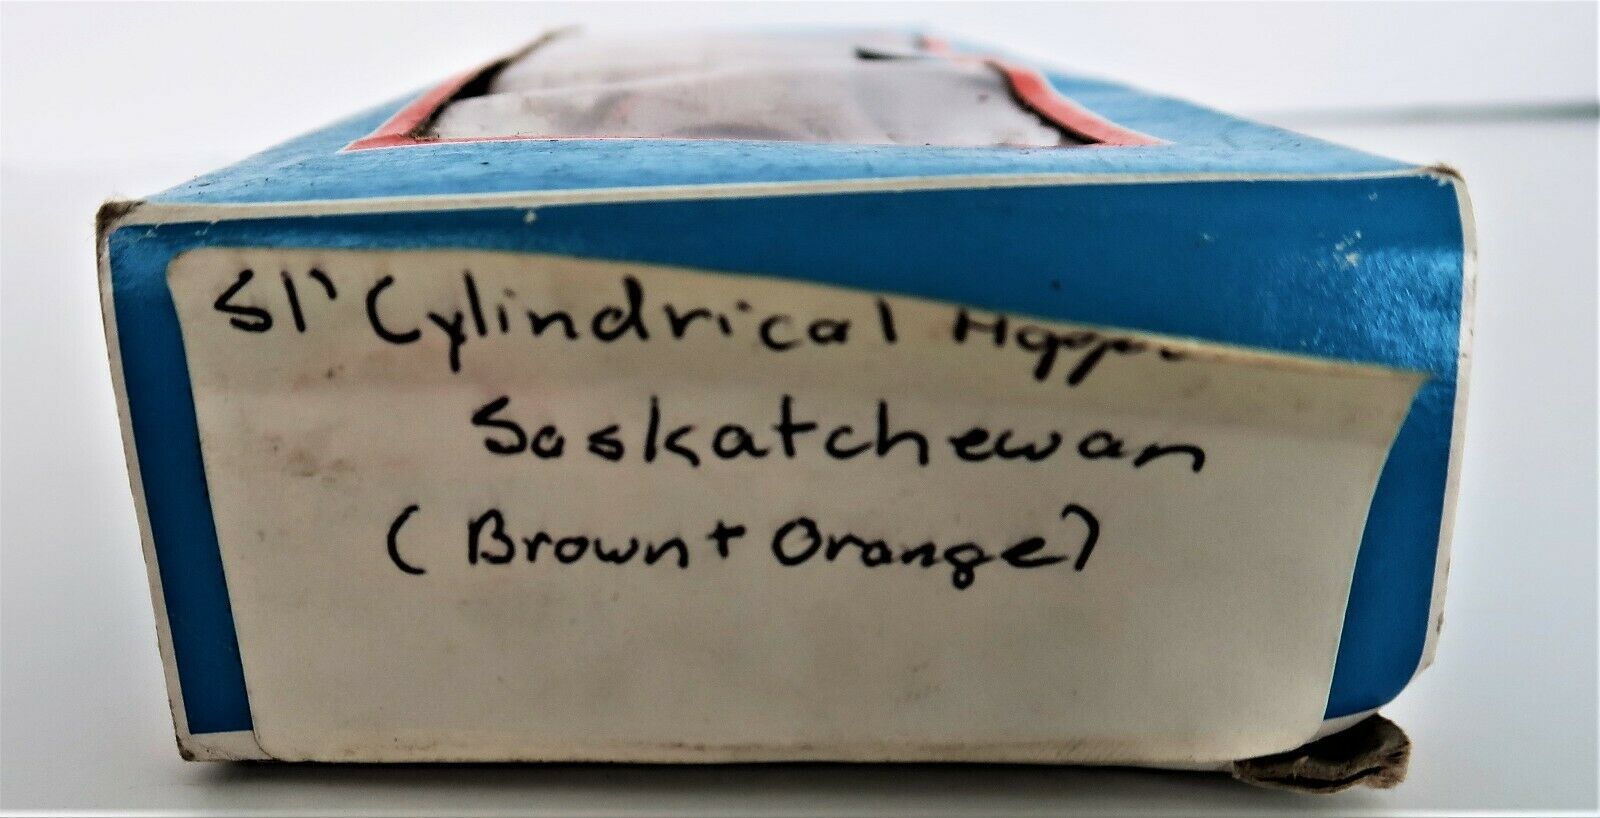 51' Cylindrical
Saskatchewan
(Brown + Orange)